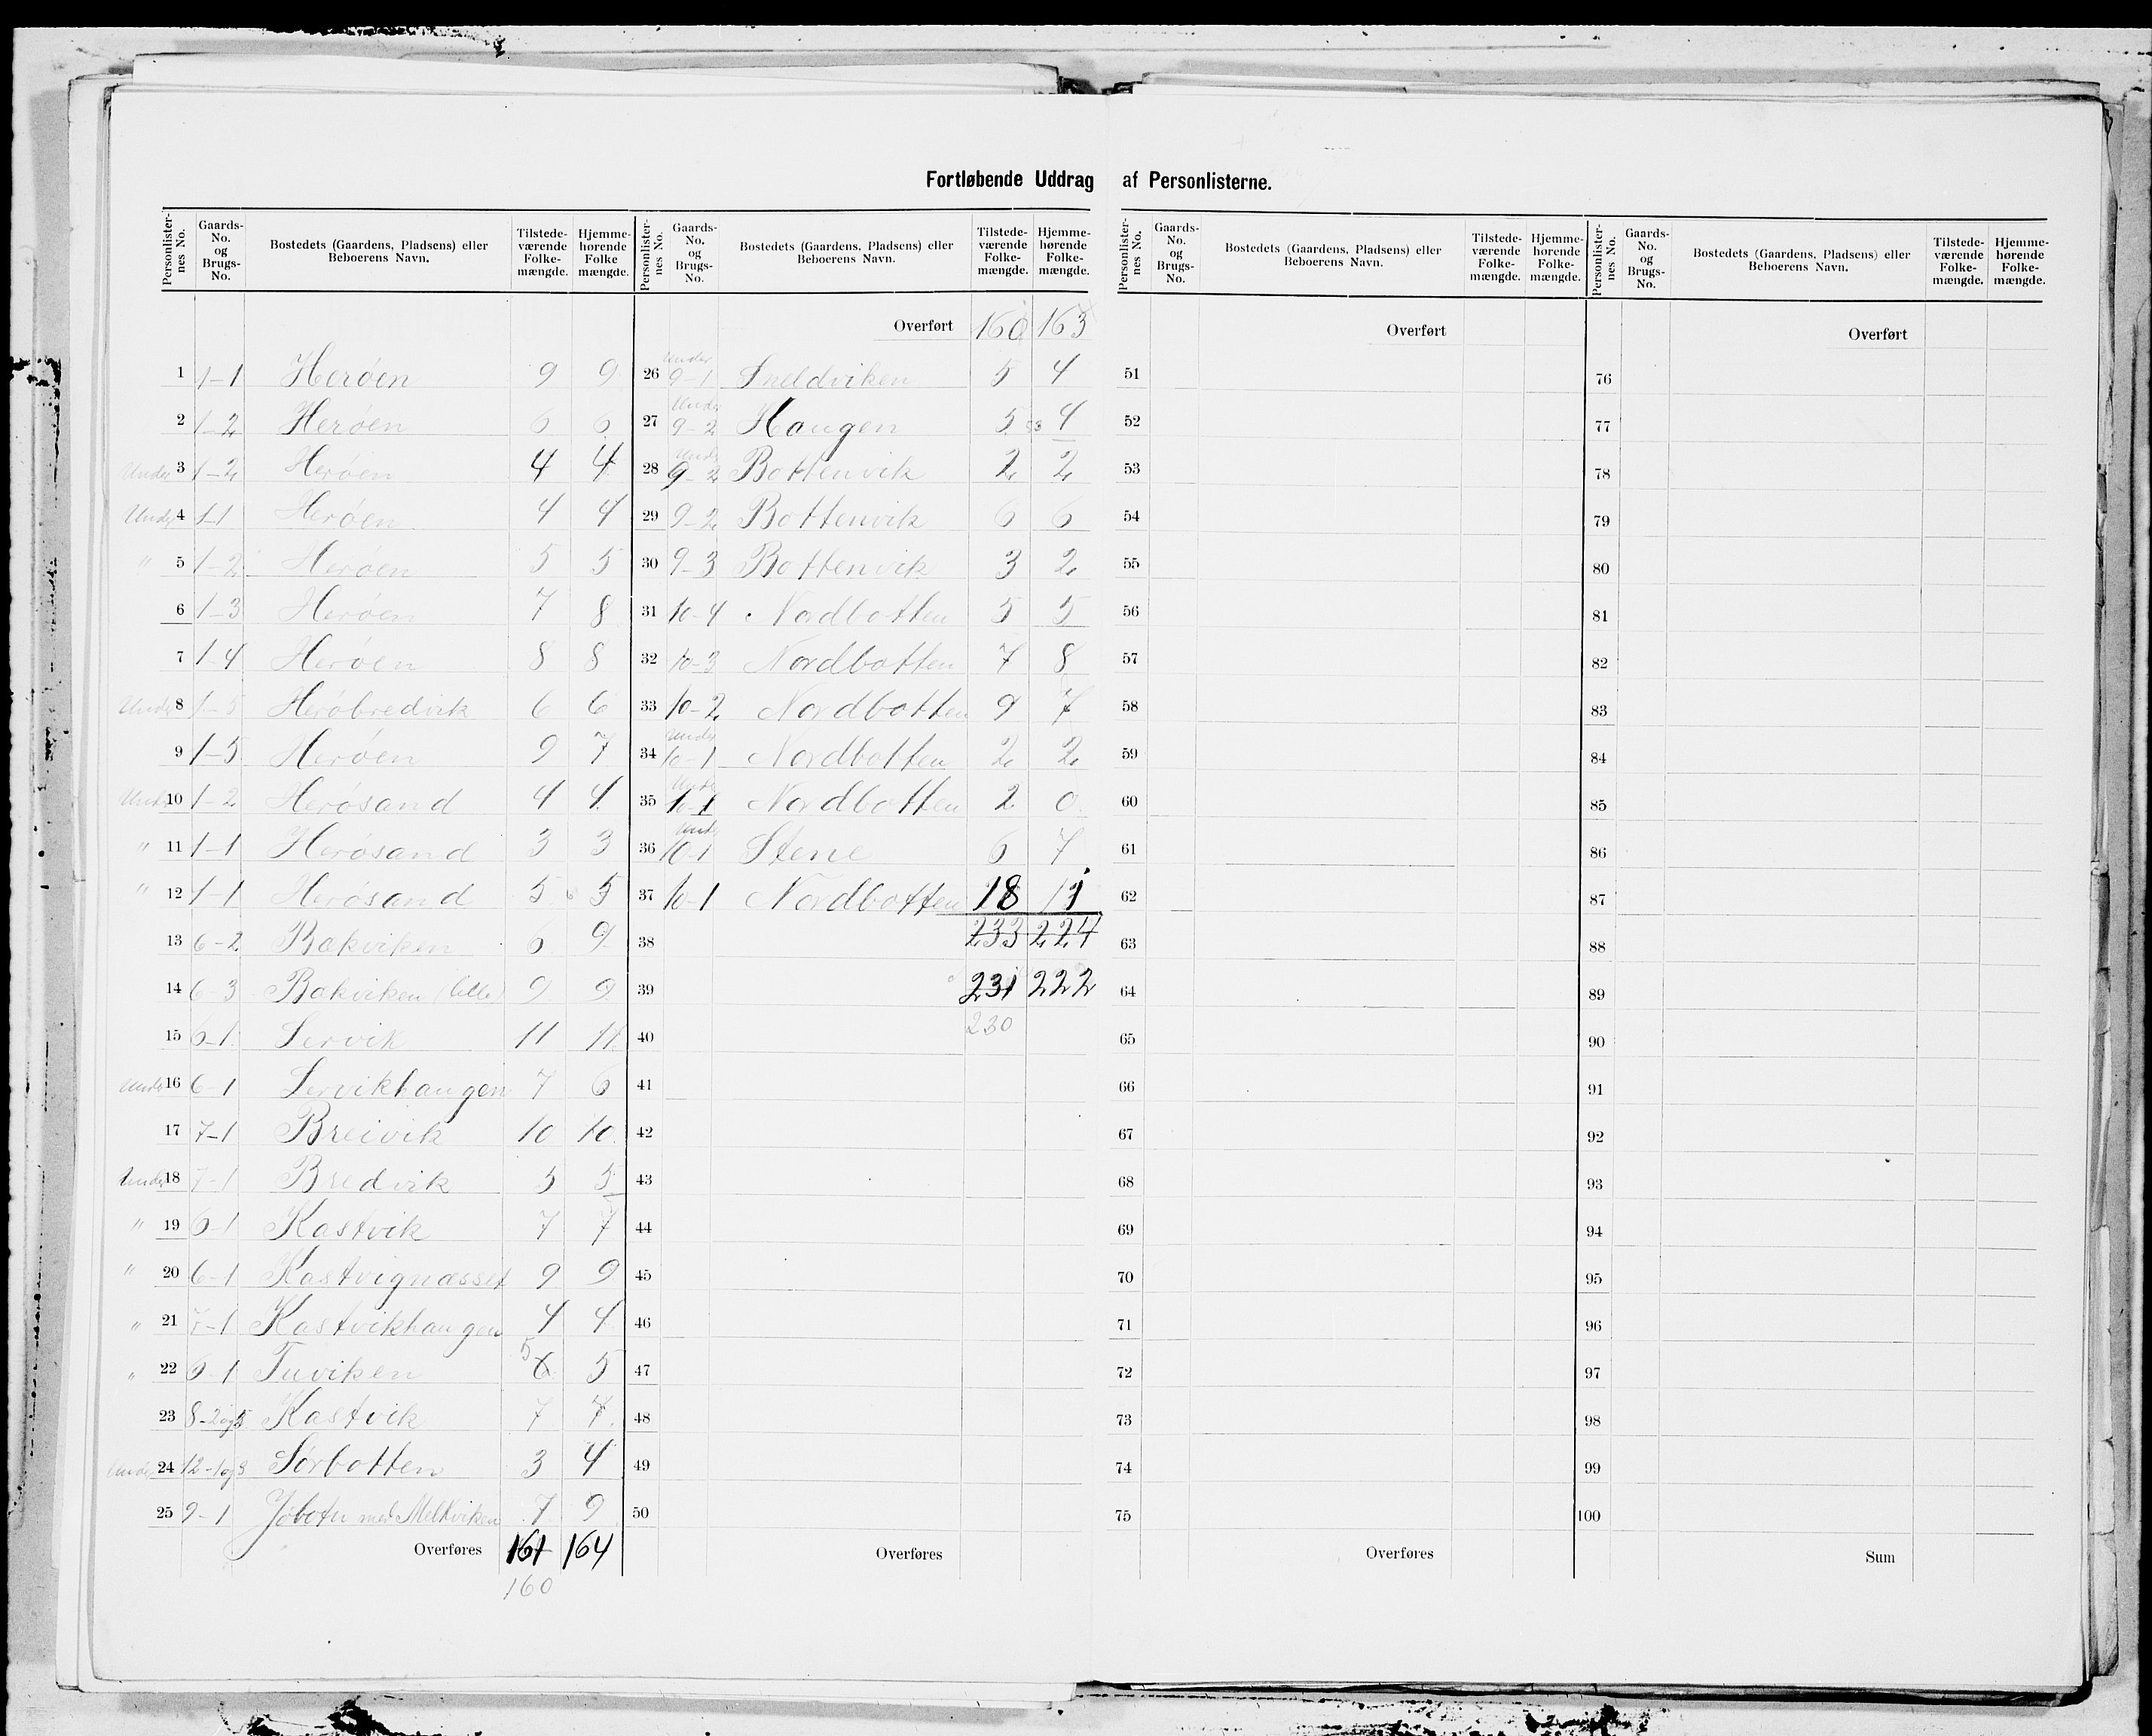 Fortløbende Uddrag af Personlisterne.
Personlister-nes No. Gaards-No. og Brugs-No. Bostedets (Gaardens, Pladsens) eller Beboerens Navn. Tilstede-værende Folke-mængde. Hjemme-hørende Folke mængde.
1 1-1 Herøen 9 9
2 1-2 Herøen 6 6
Under 3 1-2 Herøen 4 4
Under 4 1-1 Herøen 4 4
" 5 1-2 Herøen 5 5
6 1-3 Herøen 7 8
7 1-4 Herøen 8 8
Under 8 1-5 Herøbredvik 6 6
9 1-5 Herøen 9 7
Under 10 1-2 Herøsand 4 4
" 11 1-1 Herøsand 3 3
" 12 1-1 Herøsand 5 5
13 6-2 Bakviken 6 9
14 6-3 Bakviken (lille) 9 9
15 6-1 Servik 11 11
Under 16 6-1 Servikhaugen 7 6
17 7-1 Breivik 10 10
Under 18 7-1 Bredvik 5 5
" 19 6-1 Kastvik 7 7
" 20 6-1 Kastvignæsset 9 9
" 21 7-1 Kastvikhaugen 4 4
" 22 6-1 Tuviken 5 6 5
23 8-2og5 Kastvik 7 7
Under 24 12-1og3 Sørbotten 3 4
25 9-1 med Melkviken 7 9
Overføres 161 164
160
Personlister-nes No. Gaards-No. og Brugs-No. Bostedets (Gaardens, Pladsens) eller Beboerens Navn. Tilstede-værende Folke-mængde. Hjemme-hørende Folke-mængde.
Overført 160 163
26 Under 9-1 Sneldviken 5 4
27 Under 9-2 Haugen 5 4
28 Under 9-2 Bottenvik 2 2
29 9-2 Bottenvik 6 6
30 9-3 Bottenvik 3 2
31 10-4 Nordbotten 5 5
32 10-3 Nordbotten 7 8
33 10-2 Nordbotten 9 7
34 Under 10-1 Nordbotten 2 2
35 Under 10-1 Nordbotten 2 0
36 Under 10-1 Stene 6 7
37 10-1 Nordbotten 18 11
38 233 224
39 231 222
40 230
41
42
43
44
45
46
47
48
49
50
Overføres
Personlister-nes No. Gaards-No. og Brugs-No. Bostedets (Gaardens, Pladsens) eller Beboerens Navn. Tilstede-værende Folke-mængde. Hjemme-hørende Folke-mængde.
Overført
51
52
53
54
55
56
57
58
59
60
61
62
63
64
65
66
67
68
69
70
71
72
73
74
75
Overføres
Personlister-nes No. Gaards-No. og Brugs-No. Bostedets (Gaardens, Pladsens) eller Beboerens Navn. Tilstede-værende Folke-mængde. Hjemme-hørende Folke-mængde.
Overført
76
77
78
79
80
81
82
83
84
85
86
87
88
89
90
91
92
93
94
95
96
97
98
99
100
Sum